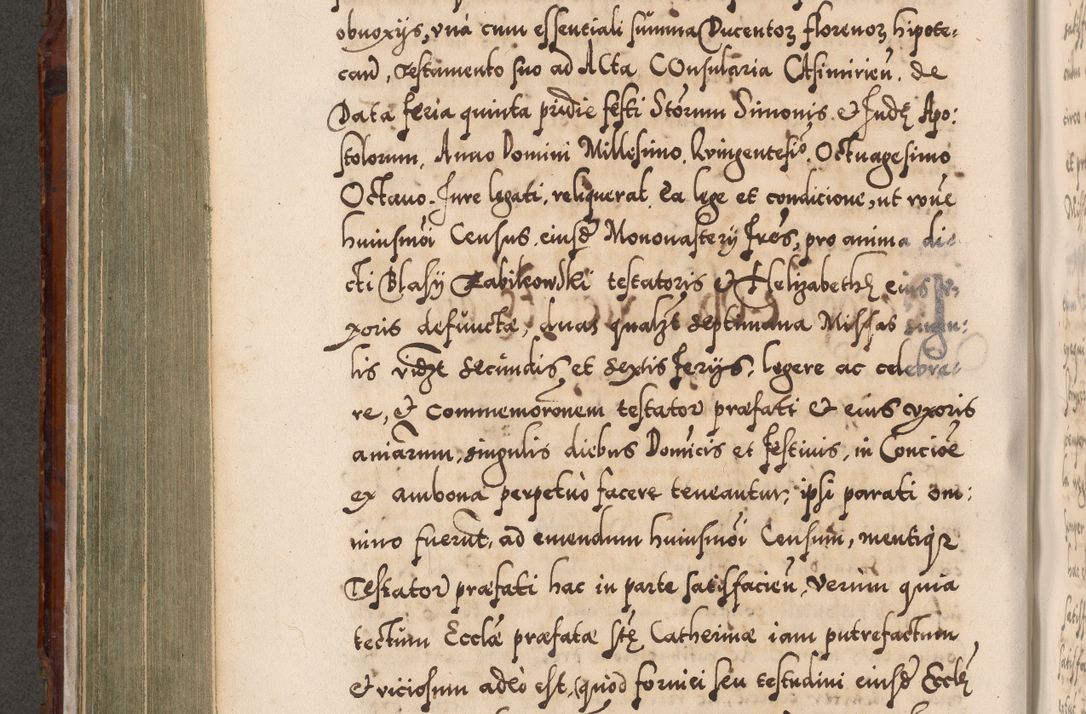 obnoxijs, vna cum essentiali summa Ducentoʒ florenoʒ hipote:
can̄, Testamento suo ad Acta COnsularia CAsimirieñ. de
Data feria quinta pridie festi Stōrum Simonis & Judę Apo:
stolorum, Anno Domini Millesimo, Kvingentesi͏̈o, Octuagesimo
Octauo. Jure legati, reliquerat. Ea lege et condicione, ut roue
huiusmōi Census, eiusđ Mononastery frēs, pro anima di:
cti Blasÿ Zabikowski testatoris & Helizabethę eius v:
xoris defunctæ, duas qualt septimana Missas singu:
lis vidzt secundis et sextis ferijs, legere ac celebra:
re, & Commemorōnem testator præfati & eius vxoris
aniārum, singulis diebus Domīcis et festiuis, in Concioe
ex ambona perpetuò facere teneantur; ipsi parati om:
nino fuerūt, ad emendum huiusmōi Censum, mentiqꝫ
Testator præfati hac in parte satisfacieñ, verùm quia
tectum Ecclæ præfatæ Stę Catherinæ iam putrefactum
& viciosum adeò est, (quòd fornici seu testudini eiusđ Ecclę